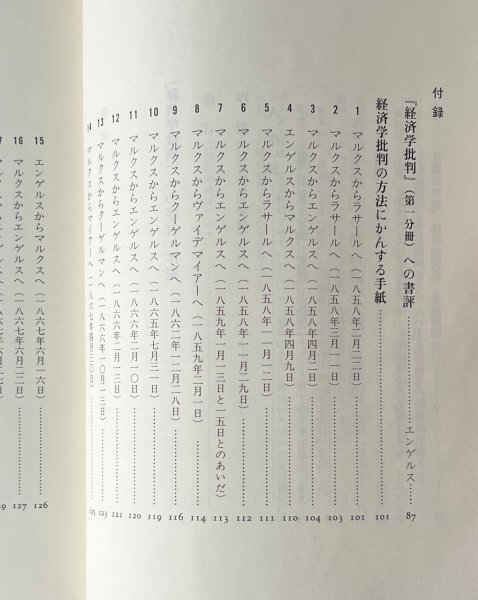 付録
『経済学批判』（第一分冊）への書評………………エンゲルス……87
経済学批判の方法にかんする手紙………………101
1 マルクスからラサールへ（一八五八年二月二二日）………………101
2 マルクスからラサールへ（一八五八年三月一一日）………………103
3 マルクスからエンゲルスへ（一八五八年四月二日）………………104
4 エンゲルスからマルクスへ（一八五八年四月九日）………………110
5 マルクスからラサールへ（一八五八年一一月一二日）………………111
6 マルクスからエンゲルスへ（一八五八年一一月二九日）………………112
7 マルクスからエンゲルスへ（一八五九年一月一三日と一五日とのあいだ）………113
8 マルクスからヴァイデマイアーへ（一八五九年二月一日）………………114
9 マルクスからクーゲルマンへ（一八六二年一二月二八日）………………116
10 マルクスからエンゲルスへ（一八六五年七月三一日）………………119
11 マルクスからエンゲルスへ（一八六六年二月一〇日）………………120
12 マルクスからエンゲルスへ（一八六六年二月一三日）………………121
13 マルクスからクーゲルマンへ（一八六六年一〇月一三日）………………123
14 マルクスからマイアーへ（一八六七年四月三〇日）………………125
15 エンゲルスからマルクスへ（一八六七年六月一六日）………………126
16 マルクスからエンゲルスへ（一八六七年六月二二日）………………127